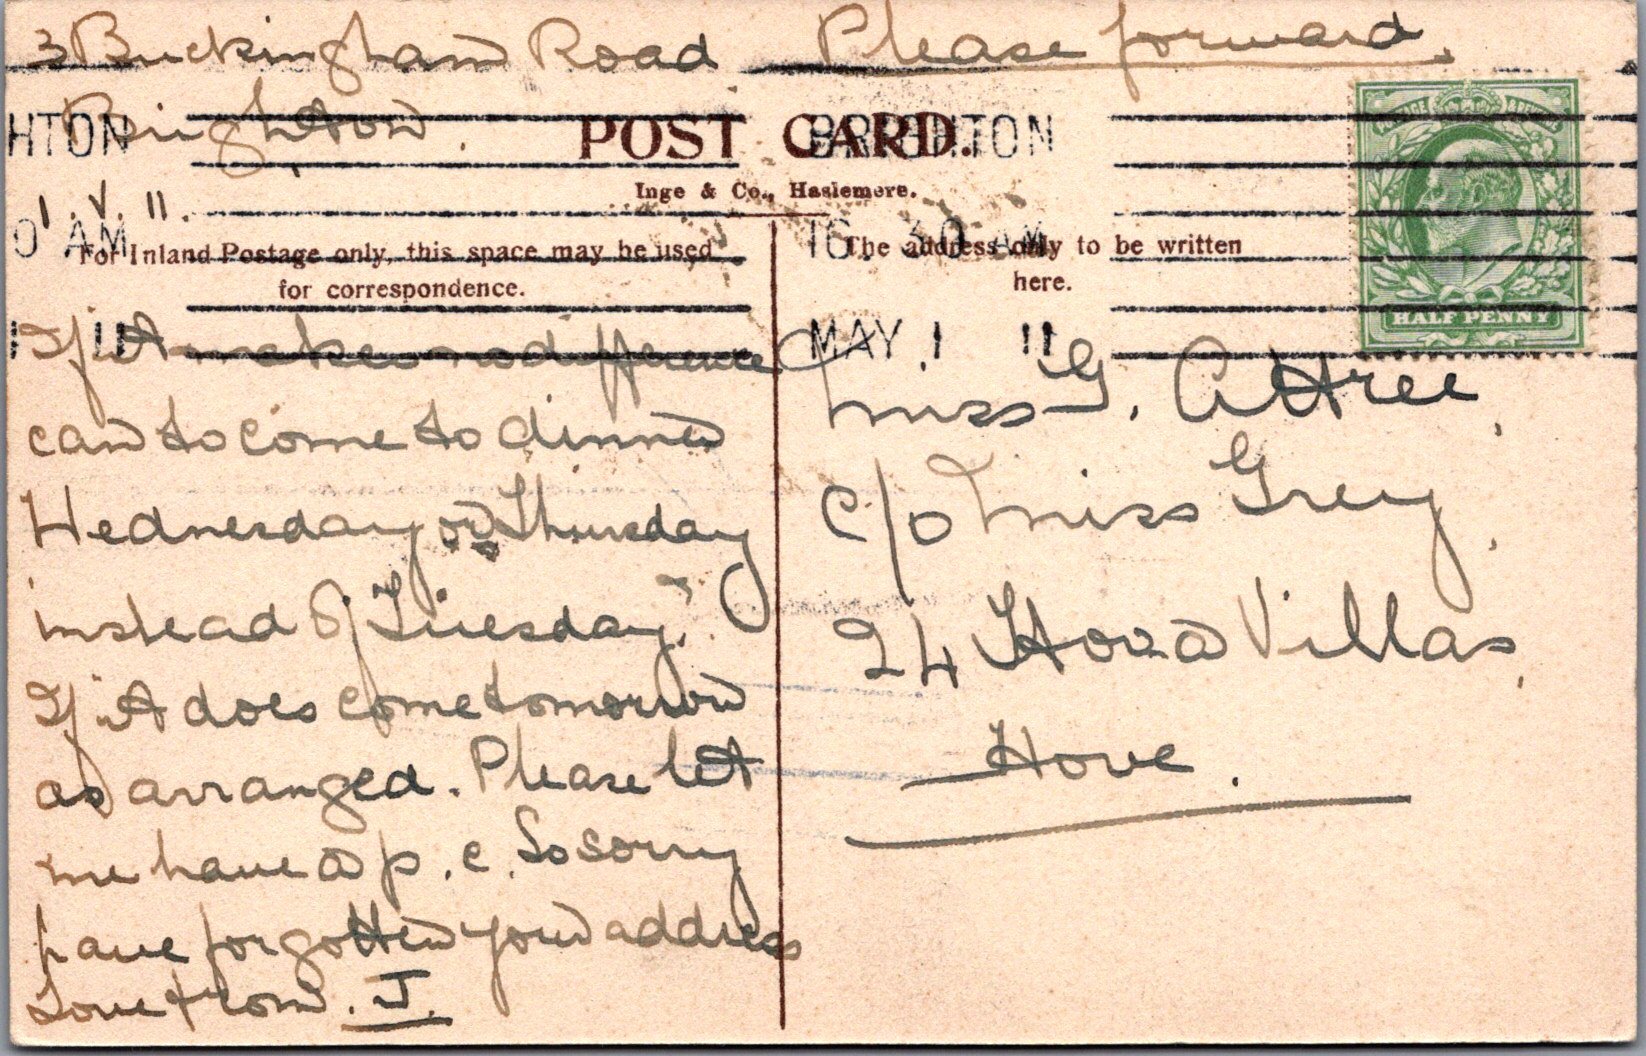 3 Buckingham Road
Brighton.
1. V. 11.
Please forward.
POST CARD.
Inge & Co., Haslemere.
For Inland Postage only, this space may be used
for correspondence.
The address only to be written
here.
HTON
0 AM
1 11
BRIGHTON
10. 30 AM
MAY 1 11
POSTAGE & REVENUE
HALF PENNY
If it makes no difference
can to come to dinner
Wednesday or Thursday
instead of Tuesday.
If it does come tomorrow
as arranged. Please let
me have a p.c. So sorry
have forgotten your address
Love from. J.
Miss G. Attree,
c/o Miss Grey,
24 Hova Villas,
Hove.